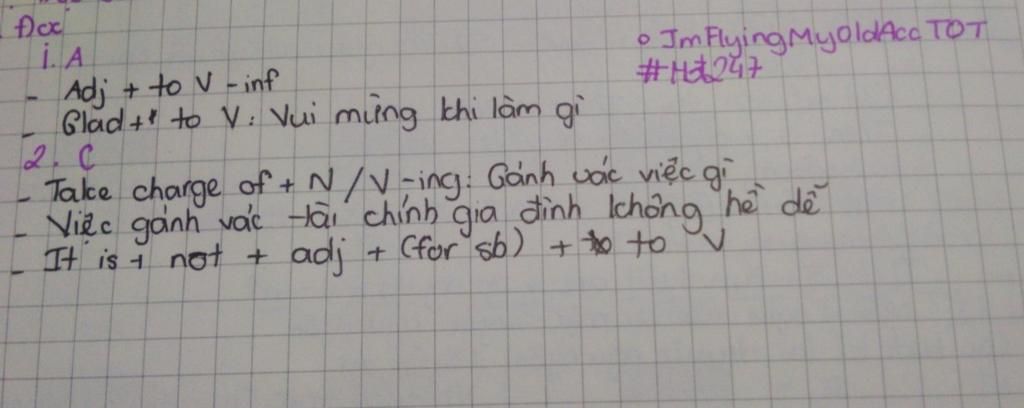 Đcx
○ ImFlyingMyOldAcc TOT
1. A
#Hđ247
- Adj + to V-inf
- Glad + to V: Vui mừng khi làm gì
2. C
- Take charge of + N / V-ing: Gánh vác việc gì
- Việc gánh vác tài chính gia đình không hề dễ
- It is + not + adj + (for sb) + to V